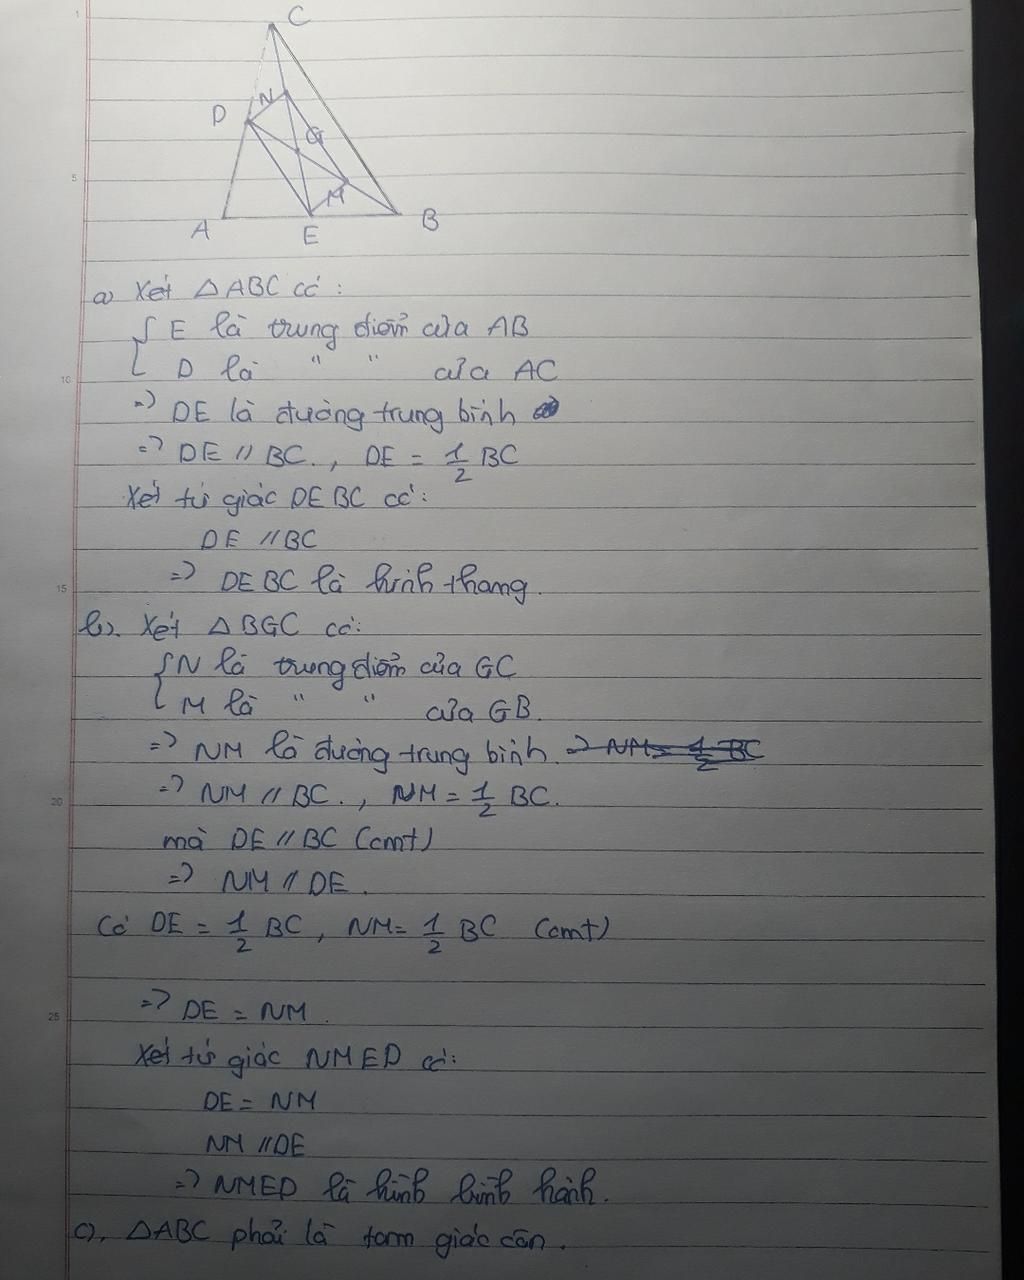 1
C
D
N
G
5
M
A
E
B
a) Xét △ABC có:
{ E là trung điểm của AB
10
D là " " của AC
=> DE là đường trung bình
=> DE // BC., DE = 1/2 BC
Xét tứ giác DEBC có:
DE // BC
15
=> DEBC là hình thang.
b). Xét △BGC có:
{ N là trung điểm của GC
M là " " của GB.
=> NM là đường trung bình. => NM = 1/2 BC
20
=> NM // BC., NM = 1/2 BC.
mà DE // BC (cmt)
=> NM // DE.
Có DE = 1/2 BC, NM = 1/2 BC (cmt)
25
=> DE = NM.
Xét tứ giác NMED có:
DE = NM
NM // DE
=> NMED là hình bình hành.
c). △ABC phải là tam giác cân.